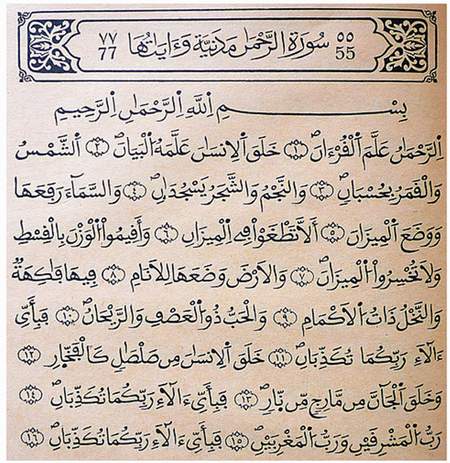 ٥٥ 55 سُورَةُ الرَّحْمَٰن مَدَنِيَّة وَءَايَاتُهَا ٧٧ 77
بِسْمِ اِللَّهِ اِلرَّحْمَٰنِ اِلرَّحِيمِ
اِلرَّحْمَٰنُ عَلَّمَ اَلْقُرْءَانَ ١ خَلَقَ اَلْاِنسَٰنَ عَلَّمَهُ اُلْبَيَانَ ٢ اَلشَّمْسُ
وَالْقَمَرُ بِحُسْبَانٖ ٣ وَالنَّجْمُ وَالشَّجَرُ يَسْجُدَٰنِ ٤ وَالسَّمَآءَ رَفَعَهَا
وَوَضَعَ اَلْمِيزَانَ ٥ أَلَّا تَطْغَوْاْ فِي اِلْمِيزَانِ ٦ وَأَقِيمُواْ اُلْوَزْنَ بِالْقِسْطِ
وَلَا تُخْسِرُواْ اُلْمِيزَانَ ٧ وَالْاَرْضَ وَضَعَهَا لِلْاَنَامِ ٨ فِيهَا فَٰكِهَةٌ
وَالنَّخْلُ ذَاتُ اُلْاَكْمَامِ ٩ وَالْحَبُّ ذُو اُلْعَصْفِ وَالرَّيْحَانُ ١٠ فَبِأَيِّ
ءَالَآءِ رَبِّكُمَا تُكَذِّبَانِ ١١ خَلَقَ اَلْاِنسَٰنَ مِن صَلْصَٰلٖ كَالْفَخَّارِ ١٢
وَخَلَقَ اَلْجَآنَّ مِن مَّارِجٖ مِّن نَّارٖ ١٣ فَبِأَيِّ ءَالَآءِ رَبِّكُمَا تُكَذِّبَانِ ١٤
رَبُّ اُلْمَشْرِقَيْنِ وَرَبُّ اُلْمَغْرِبَيْنِ ١٥ فَبِأَيِّ ءَالَآءِ رَبِّكُمَا تُكَذِّبَانِ ١٦